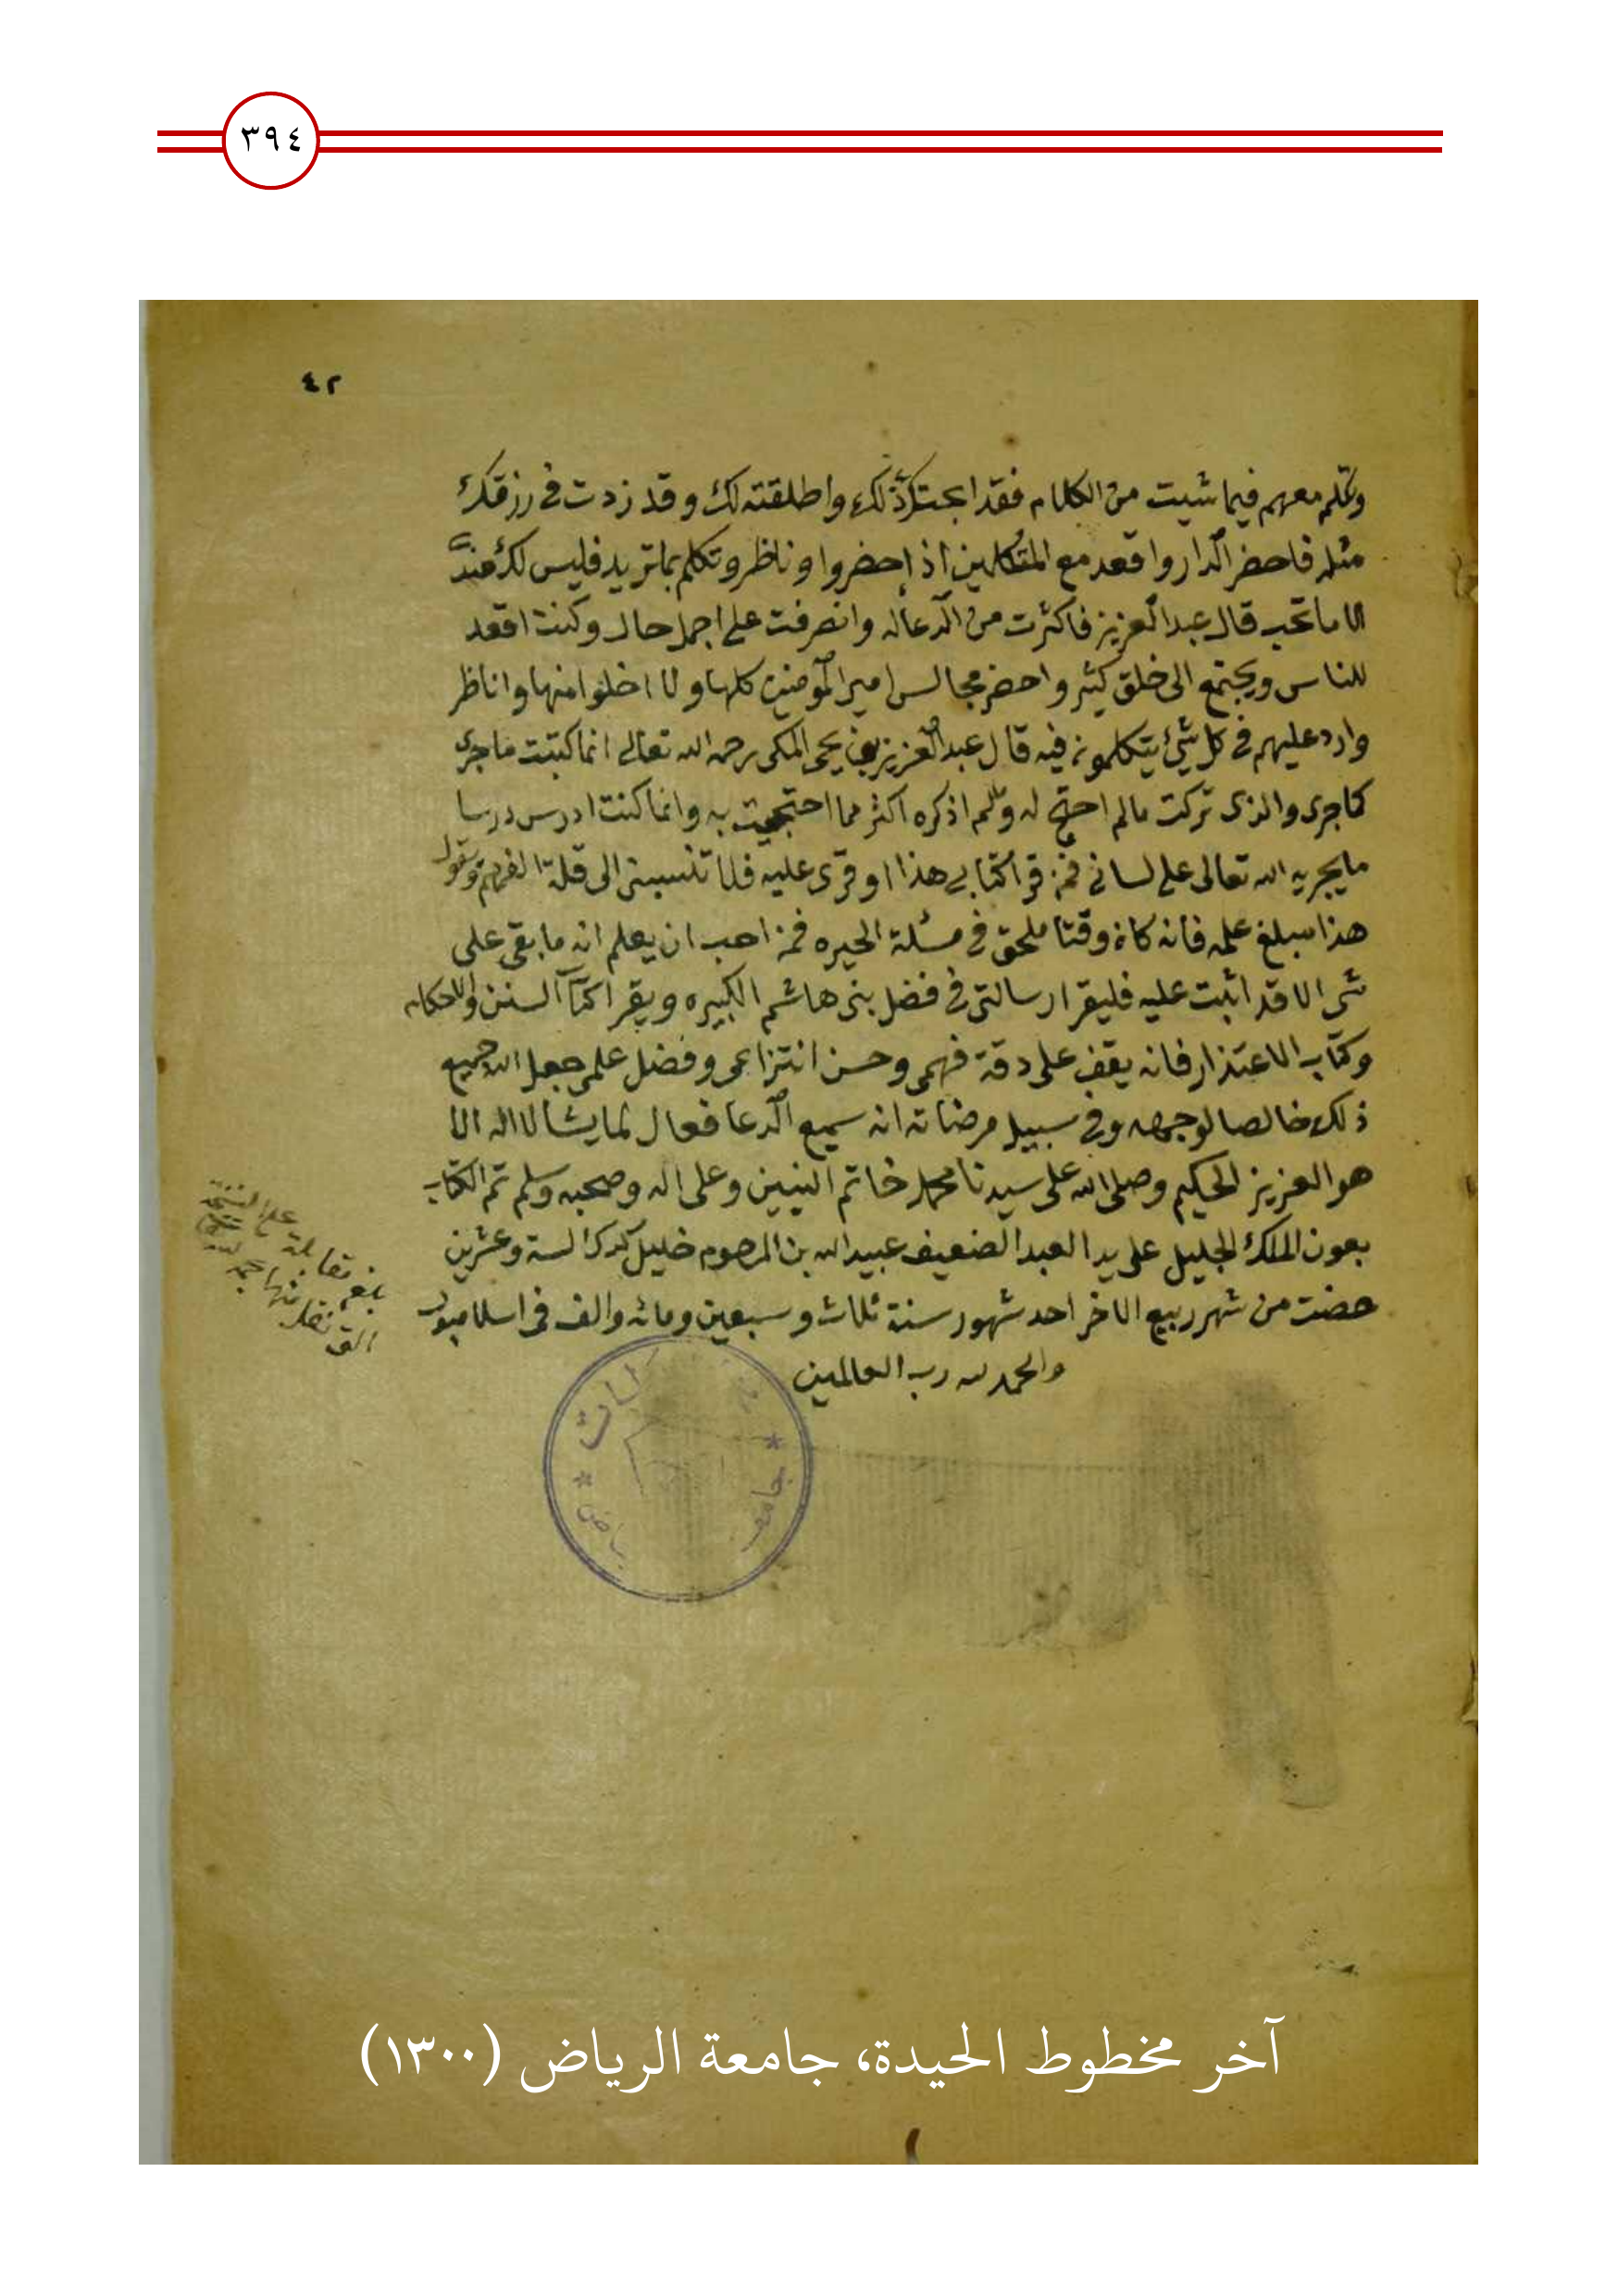 ٣٩٤
٤٢
وتكلم معهم فيما شيت من الكلام فقد ابحتك ذلك واطلقته لك وقد زدت في رزقك
مثله فاحضر الدار واقعد مع المتكلمين اذ احضروا وناظر وتكلم بما تريد فليس لك عند
الا ما تحب قال عبد العزيز فاكثرت من الدعا له وانصرفت على اجمل حال وكنت اقعد
للناس ويجتمع الى خلق كثير واحضر مجالس امير المؤمنين كلها ولا اخلوا منها واناظر
وارد عليهم في كل شئ يتكلمون فيه قال عبد العزيز بن يحيى المكى رحمه الله تعالى انما كتبت ما جرى
كما جرى والذى تركت مالم احتج له ولم اذكره اكثر مما احتججت به وانما كنت ادرس درسا
ما يجريه الله تعالى على لسانى فمن قرا كتابي هذا او قرى عليه فلا تنسبنى الى قلة الفهم ويقول
هذا مبلغ علمه فانه كان وقتا ملحق في مسئلة الحيره فمن احب ان يعلم انه ما بقى على
شى الا قد اتيت عليه فليقرا رسالتى في فضل بنى هاشم الكبيره ويقرا كتاب السنن والاحكام
وكتاب الاعتذار فانه يقف على دقة فهمى وحسن انتزاعى وفضل علمى جعل الله جميع
ذلك خالصا لوجهه وفي سبيل مرضاته انه سميع الدعا فعال لما يشا لا اله الا
هو العزيز الحكيم وصلى الله على سيدنا محمد خاتم النبيين وعلى اله وصحبه وسلم تم الكتاب
بعون الملك الجليل على يد العبد الضعيف عبيد الله بن المرحوم خليل الستة وعشرين
حضت من شهر ربيع الاخر احد شهور سنة ثلاث وسبعين ومائه والف في اسلامبول
والحمد لله رب العالمين
بلغ مقابلة على النسخة
التى نقل منها
جامعة
آخر مخطوط الحيدة، جامعة الرياض (١٣٠٠)